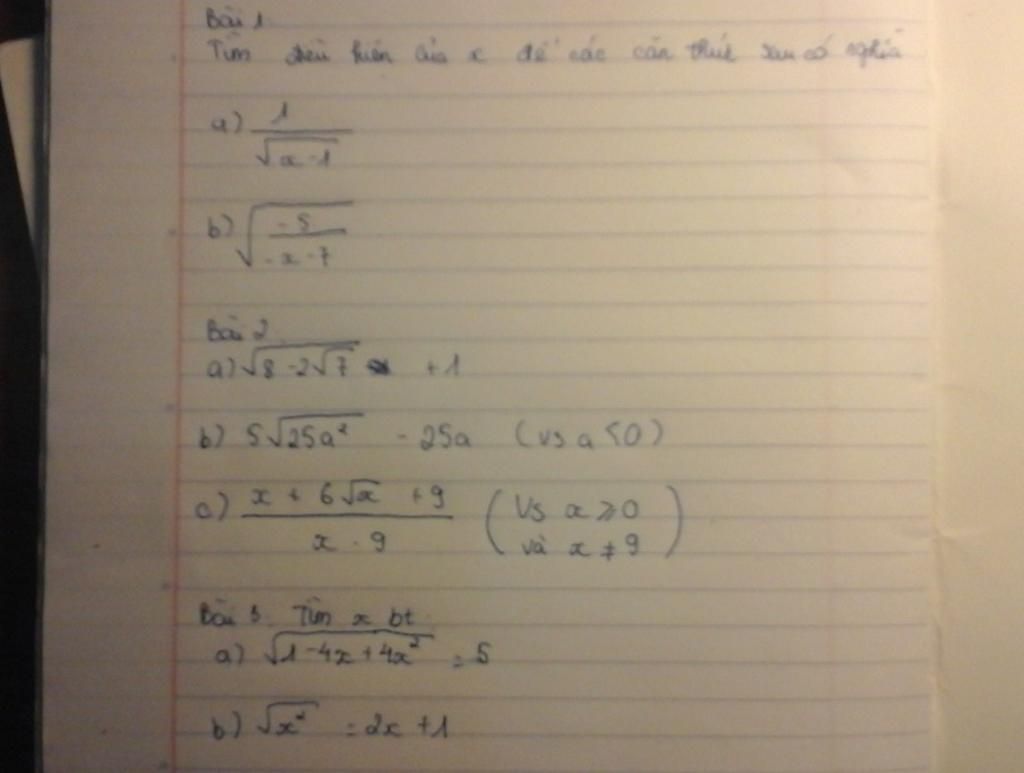 Bài 1
Tìm điều kiện của x để các căn thức sau có nghĩa
a) 1/√(x-1)
b) √(-5/(-x-7))
Bài 2
a) √(8-2√7) +1
b) 5√(25a²) - 25a (vs a<0)
c) (x + 6√x + 9)/(x - 9) (Vs x ≥ 0 và x ≠ 9)
Bài 3. Tìm x bt.
a) √(1-4x+4x²) = 5
b) √(x²) = 2x +1